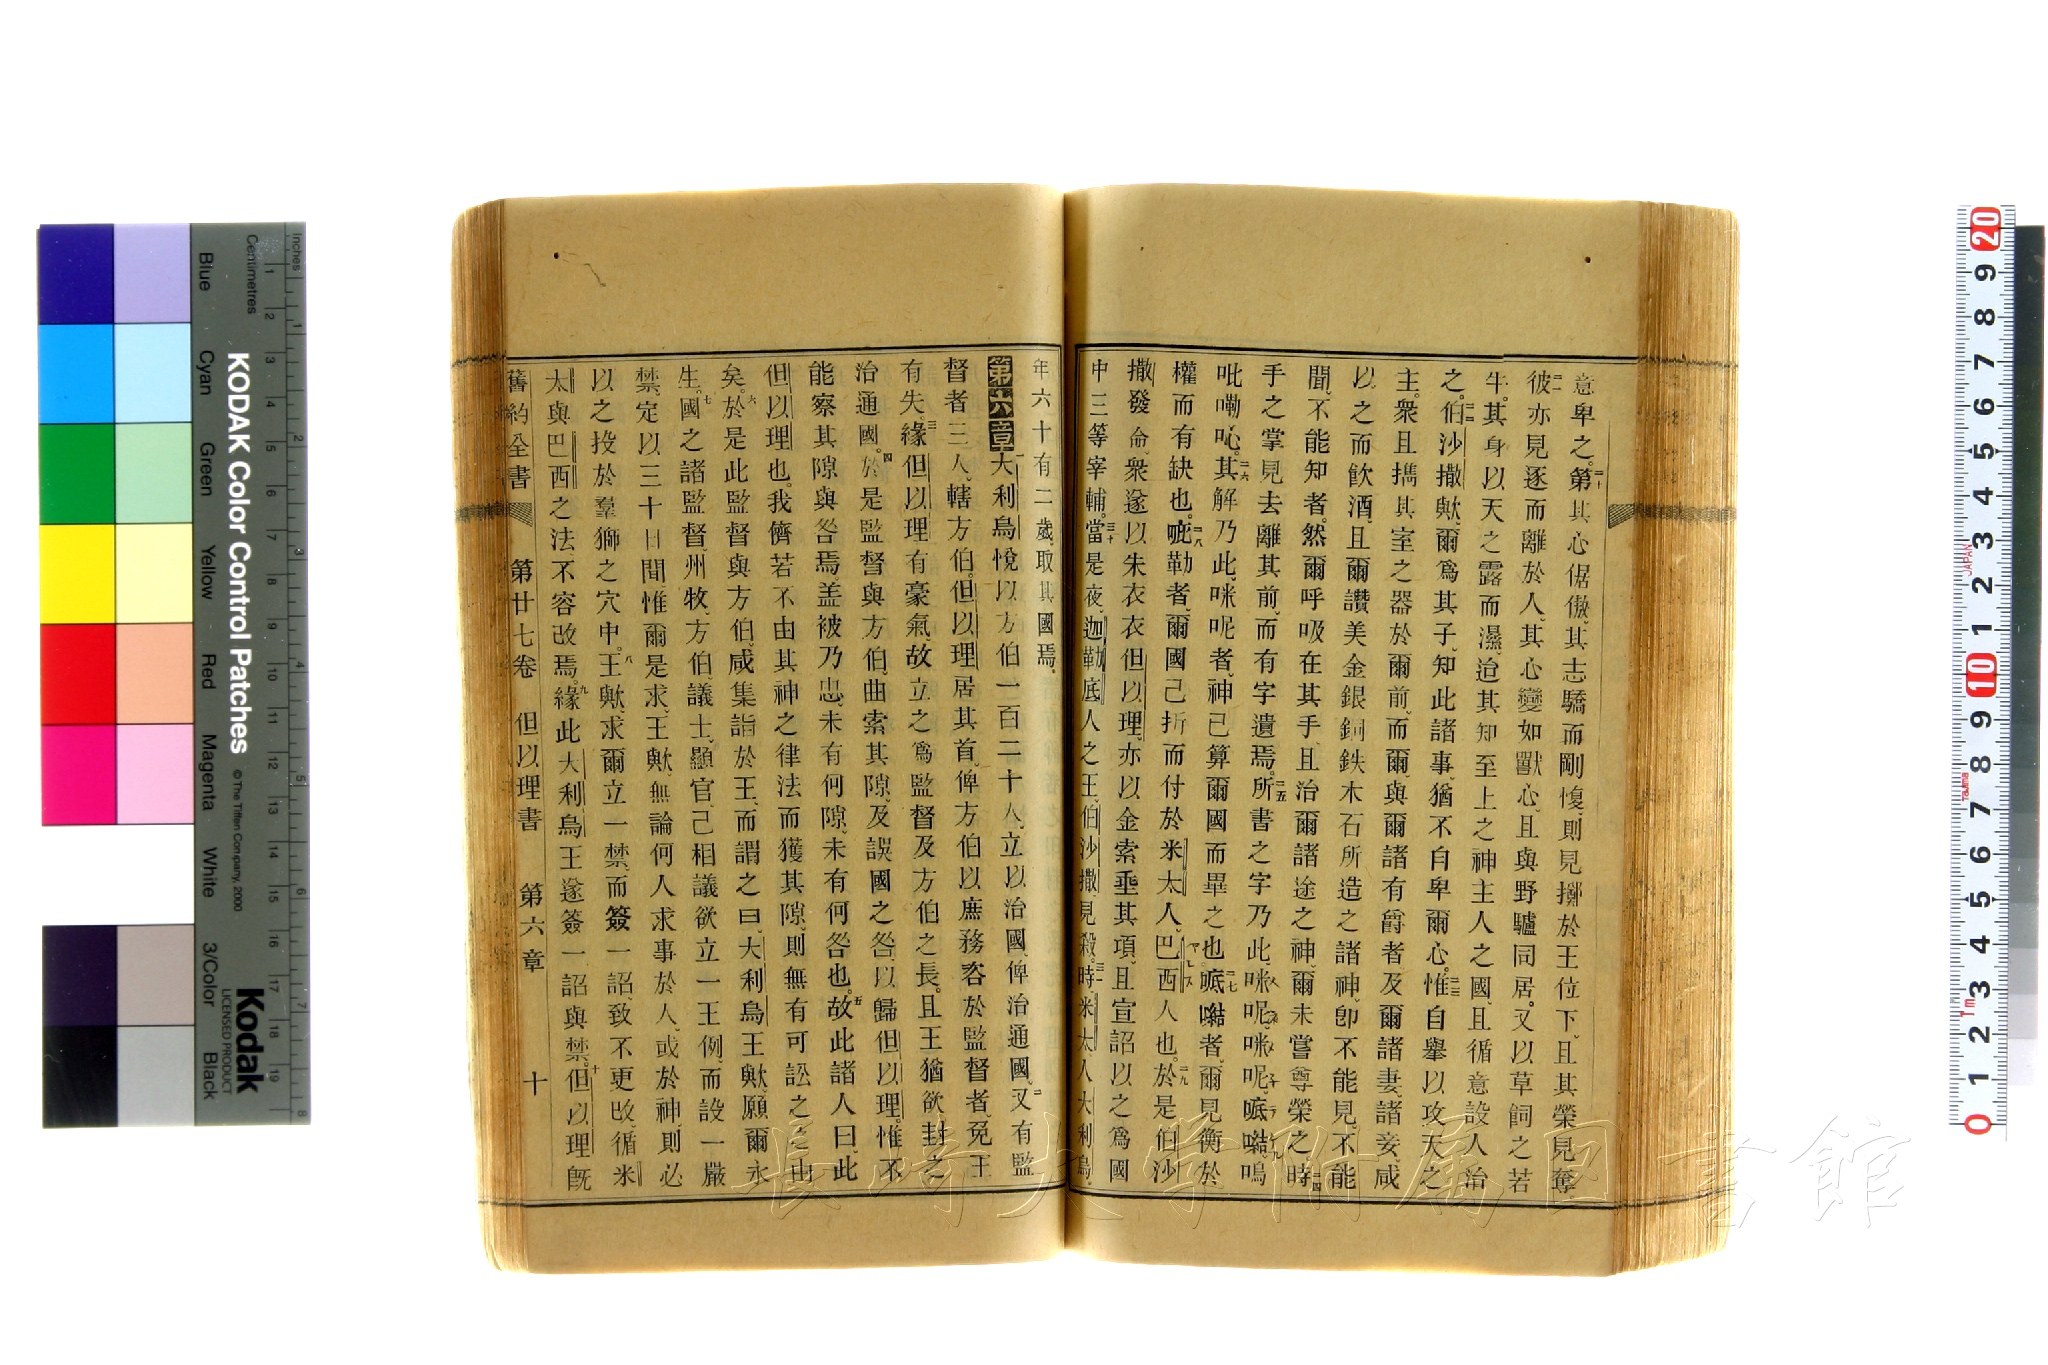 意卑之。二十第其心倨傲、其志驕而剛愎、則見擲於王位下、且其榮見奪
二一彼亦見逐而離於人、其心變如獸心、且與野驢同居。又以草飼之若
牛。其身以天之露而濕、迨其知至上之神主人之國、且循意設人治
之。二二伯沙撒歟、爾爲其子、知此諸事、猶不自卑爾心。二三惟自舉以攻天之
主。衆且攜其室之器於爾前、而爾、與爾諸有爵者、及爾諸妻、諸妾、咸
以之而飮酒、且爾讚美金銀銅鉄木石所造之諸神、卽不能見、不能
聞、不能知者。然爾呼吸在其手、且治爾諸途之神、爾未嘗尊榮之。二四時
手之掌見去離其前、而有字遺焉。二五所書之字乃此、咪呢、咪呢、嗚
吡嘞吣。二六其解乃此、咪呢者、神已算爾國而畢之也。二七者、爾見衡於
權而有缺也。二八吡勒者、爾國已折而付於米太人、巴西人也。二九於是伯沙
撒發命、衆遂以朱衣衣但以理、亦以金索垂其項、且宣詔以之爲國
中三等宰輔。三十當是夜、迦勒底人之王、伯沙撒、見殺。三一時、米太人大利烏、
年六十有二歲、取其國焉。
第六章一大利烏悅以方伯一百二十人、立以治國、俾治通國、二又有監
督者三人、轄方伯。但以理居其首、俾方伯以庶務咨於監督者、免王
有失。三緣但以理有豪氣、故立之爲監督及方伯之長。且王猶欲封之
治通國。四於是監督與方伯、曲索其隙、及誤國之咎、以歸但以理。惟不
能察其隙與咎焉、盖被乃忠、未有何隙、未有何咎也。五故此諸人曰、此
但以理也。我儕若不由其神之律法而獲其隙、則無有可訟之之由
矣。六於是此監督與方伯、咸集詣於王、而謂之曰、大利烏王歟、願爾永
生。七國之諸監督、州牧、方伯、議士、顯官、已相議欲立一王例、而設一嚴
禁、定以三十日間、惟爾是求、王歟、無論何人求事於人、或於神、則必
以之投於羣獅之穴中。八王歟、求爾立一禁、而簽一詔、致不更改、循米
太與巴西之法、不容改焉。九緣此大利烏王遂簽一詔與禁。十但以理旣
舊約全書 第廿七卷 但以理書 第六章 十
長崎大学附属図書館
KODAK Color Control Patches
© The Tiffen Company, 2000
Kodak
LICENSED PRODUCT
Inches
Centimetres
Blue Cyan Green Yellow Red Magenta White 3/Color Black
JAPAN
Tajima